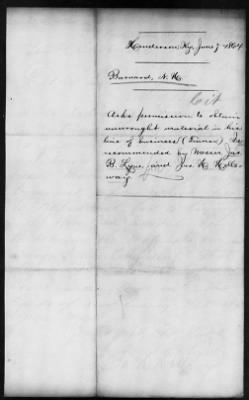 Henderson Ky. June 7 1864
Barnard, N. H.
Cit
Asks permission to obtain
unwrought material in his
line of business (Tinner) Is
recommended by Messrs Jas
B. Lyne, and Jas. H. Hollo-
way